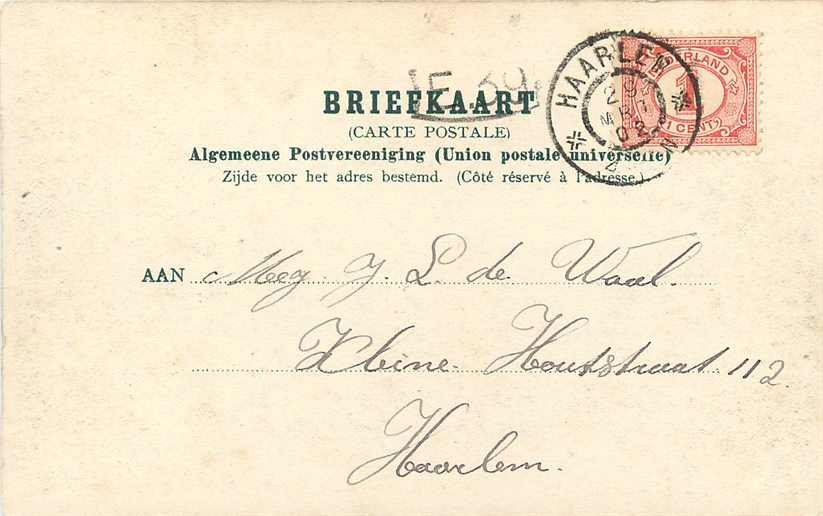 IE.
BRIEFKAART
(CARTE POSTALE)
Algemeene Postvereeniging (Union postale universelle)
Zijde voor het adres bestemd. (Côté réservé à l'adresse.)
HAARLEM
29
MRT
02
1
CENT
AAN Mej. J. L. de Waal.
Kleine Houtstraat 112.
Haarlem.